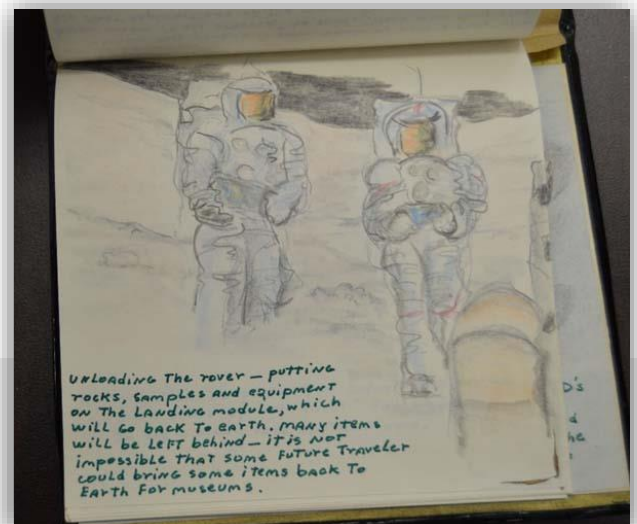 Unloading The rover — putting
rocks, samples and equipment
on The Landing module, which
will go back To earth. many items
will be Left behind — it is not
impossible that some Future Traveler
could bring some items back To
Earth For museums.
D's